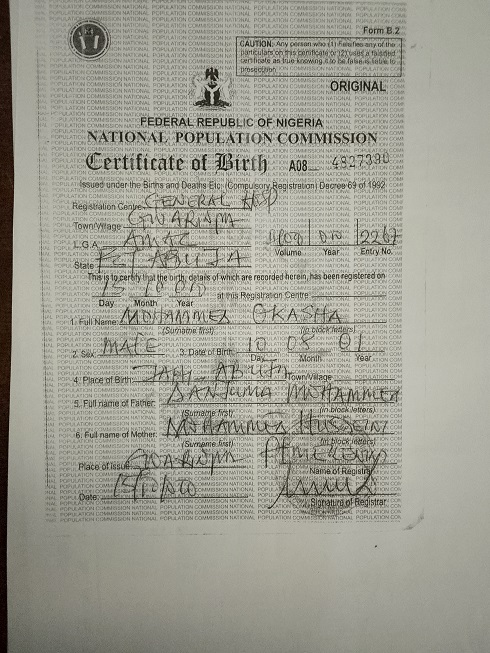 Form B.2
CAUTION: Any person who (1) Falsifies any of the
particulars on this certificate or (2) uses a falsified
certificate as true knowing it to be false is liable to
prosecution
ORIGINAL
FEDERAL REPUBLIC OF NIGERIA
NATIONAL POPULATION COMMISSION
Certificate of Birth A08 4327390
Issued under the Births and Deaths Etc. (Compulsory Registration) Decree 69 of 1992
Registration Centre GENERAL HOSP
Town/Village GWARINPA
L.G.A. AMAC
State FCT ABUJA
Volume Year Entry No. 2267
This is to certify that the birth, details of which are recorded herein, has been registered on
15 10
Day Month Year at this Registration Centre
1. Full Name: MOHAMMED OKASHA
(Surname first) (In block letters)
2. Sex: MALE 3. Date of Birth: 10 08 01
Day Month Year
4. Place of Birth: ABUJA Town/Village
5. Full name of Father: DANJUMA MOHAMMED
(Surname first) (In block letters)
6. Full name of Mother: MOHAMMED HUSSEINI
(Surname first) (In block letters)
Place of issue GWARINPA
Name of Registrar
Date:
Signature of Registrar